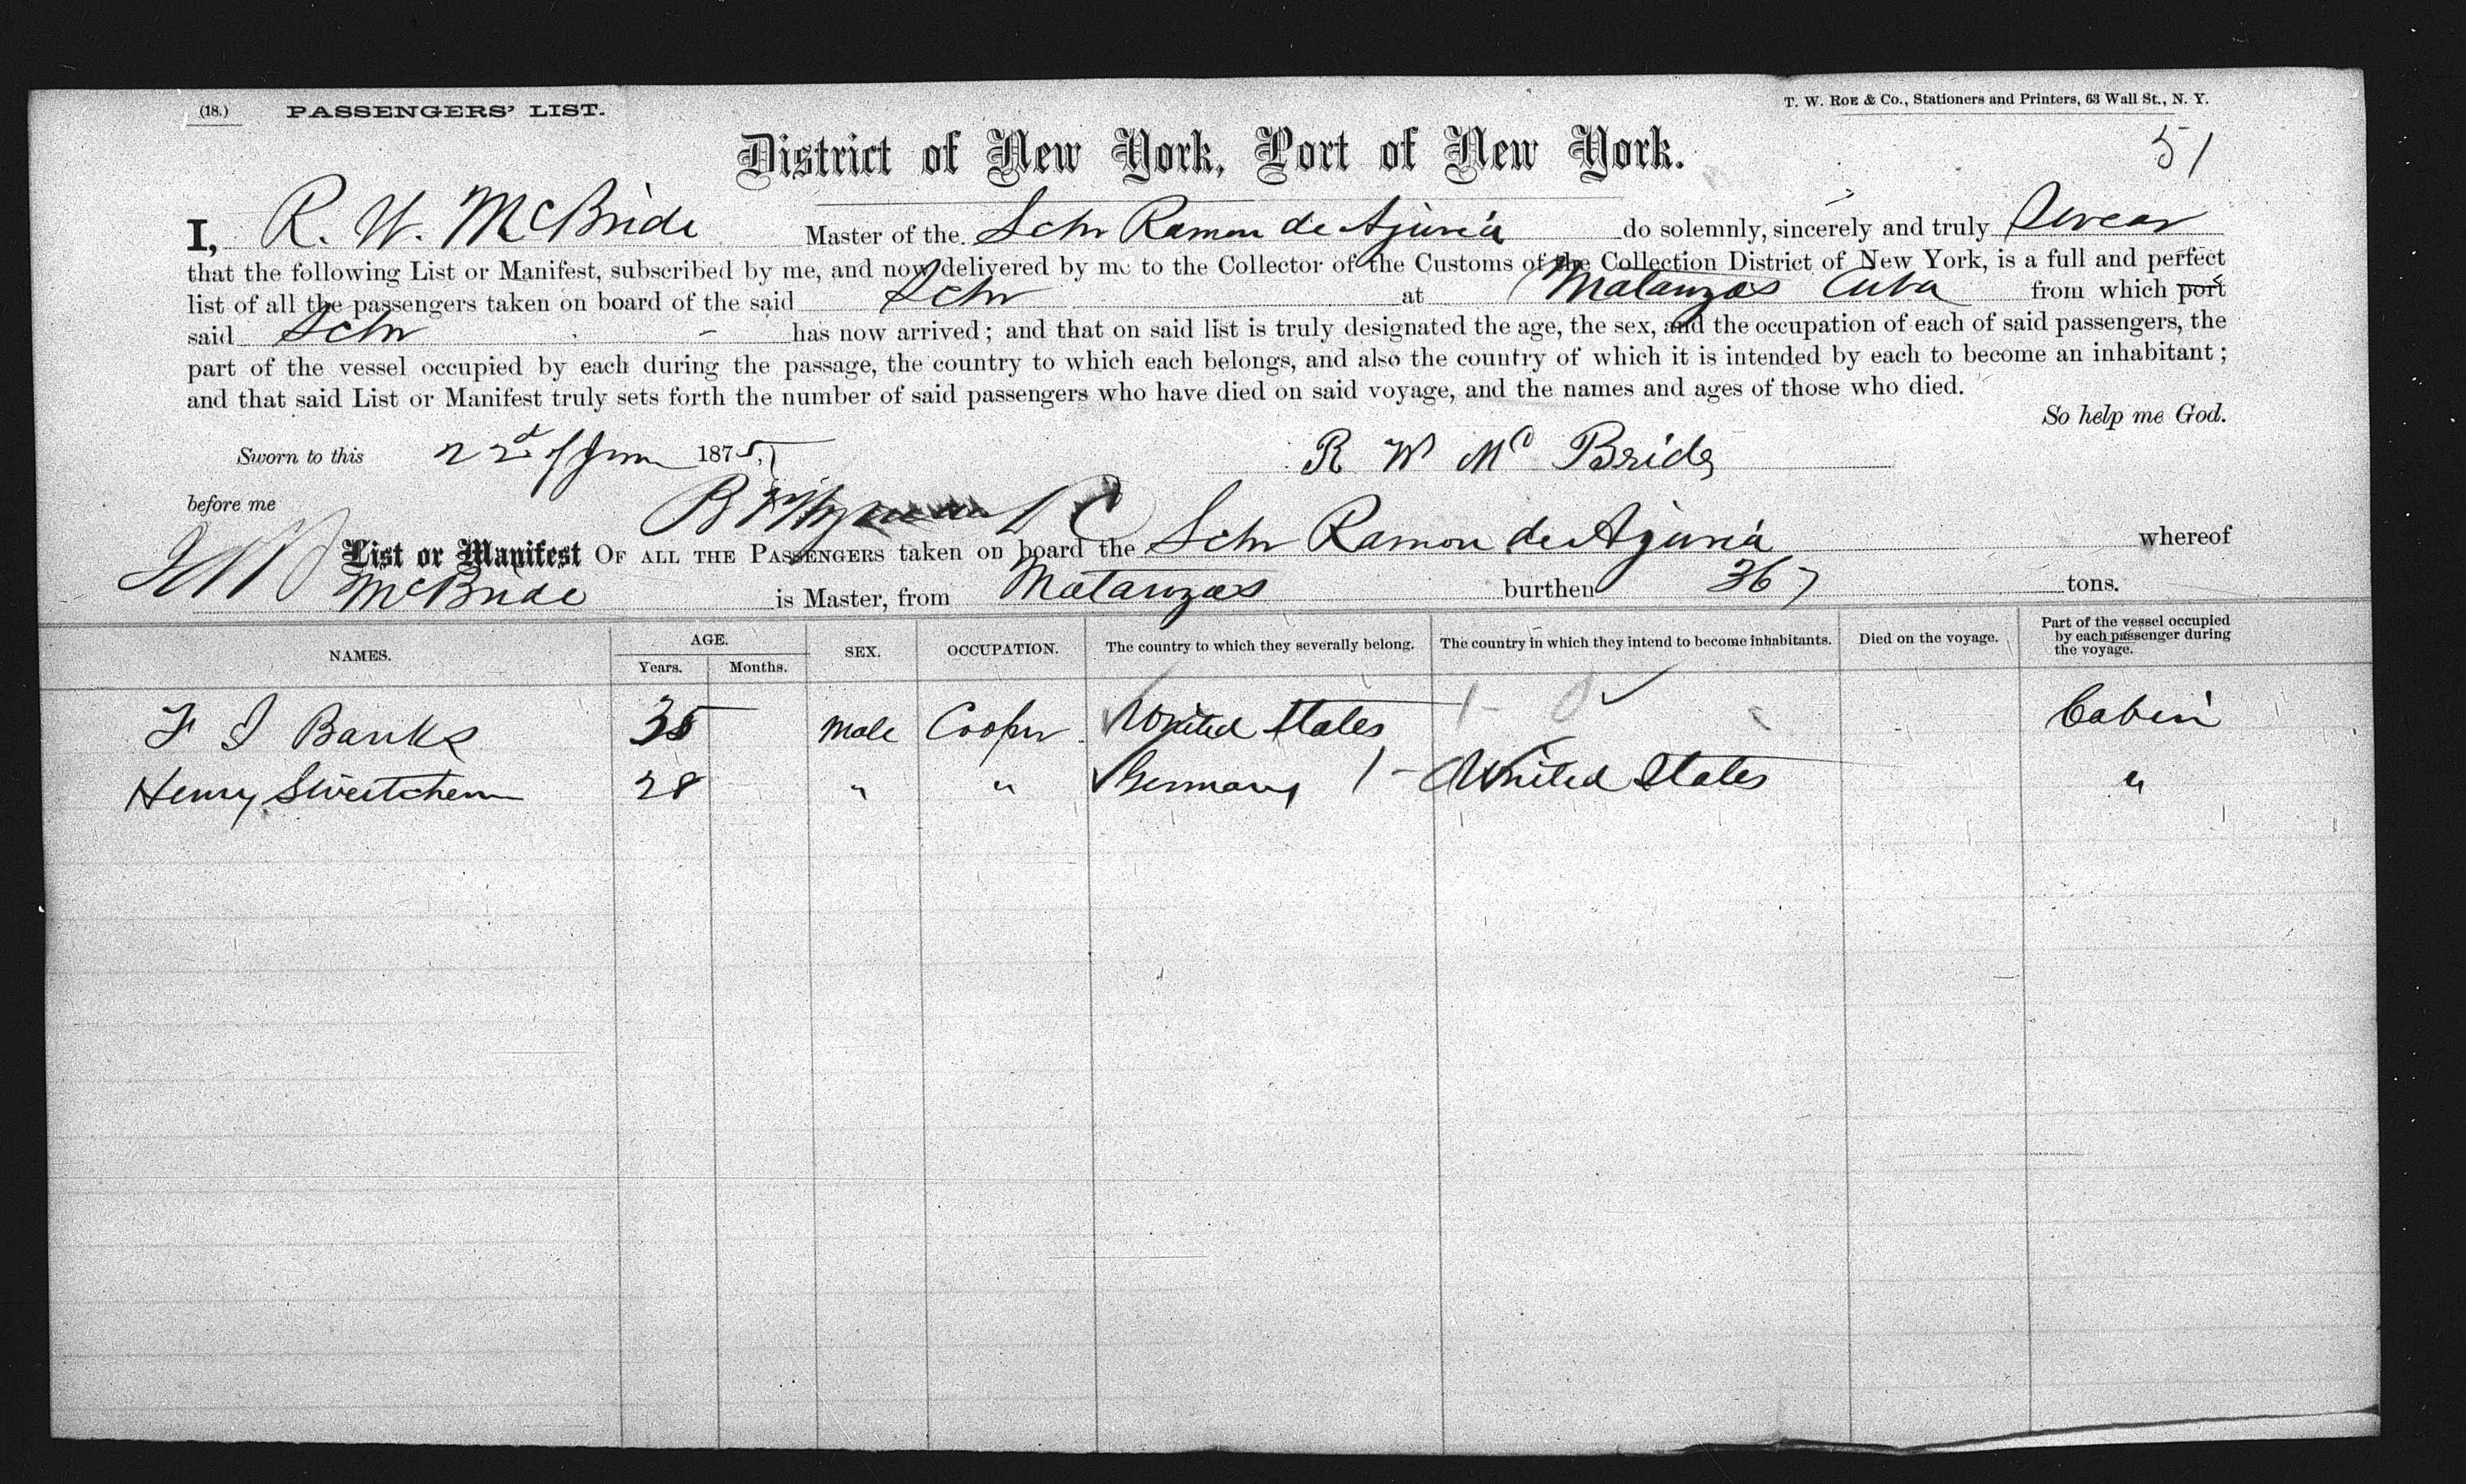 (18.) PASSENGERS' LIST. T. W. ROE & Co., Stationers and Printers, 63 Wall St., N. Y.
51
District of New York, Port of New York.
I, R. W. McBride Master of the Schr Ramon de Ajuria do solemnly, sincerely and truly Swear
that the following List or Manifest, subscribed by me, and now delivered by me to the Collector of the Customs of the Collection District of New York, is a full and perfect
list of all the passengers taken on board of the said Schr at Matanzas Cuba from which port
said Schr has now arrived; and that on said list is truly designated the age, the sex, and the occupation of each of said passengers, the
part of the vessel occupied by each during the passage, the country to which each belongs, and also the country of which it is intended by each to become an inhabitant;
and that said List or Manifest truly sets forth the number of said passengers who have died on said voyage, and the names and ages of those who died.
So help me God.
Sworn to this 22d of 1875, R W Mc Bride
before me
List or Manifest OF ALL THE PASSENGERS taken on board the Schr Ramon de Ajuria whereof
McBride is Master, from Matanzas burthen 367 tons.
NAMES. AGE. Years. Months. SEX. OCCUPATION. The country to which they severally belong. The country in which they intend to become inhabitants. Died on the voyage. Part of the vessel occupied by each passenger during the voyage.
Banks 35 Male Cooper United States Cabin
Henry 28 " " Germany 1 - United States "